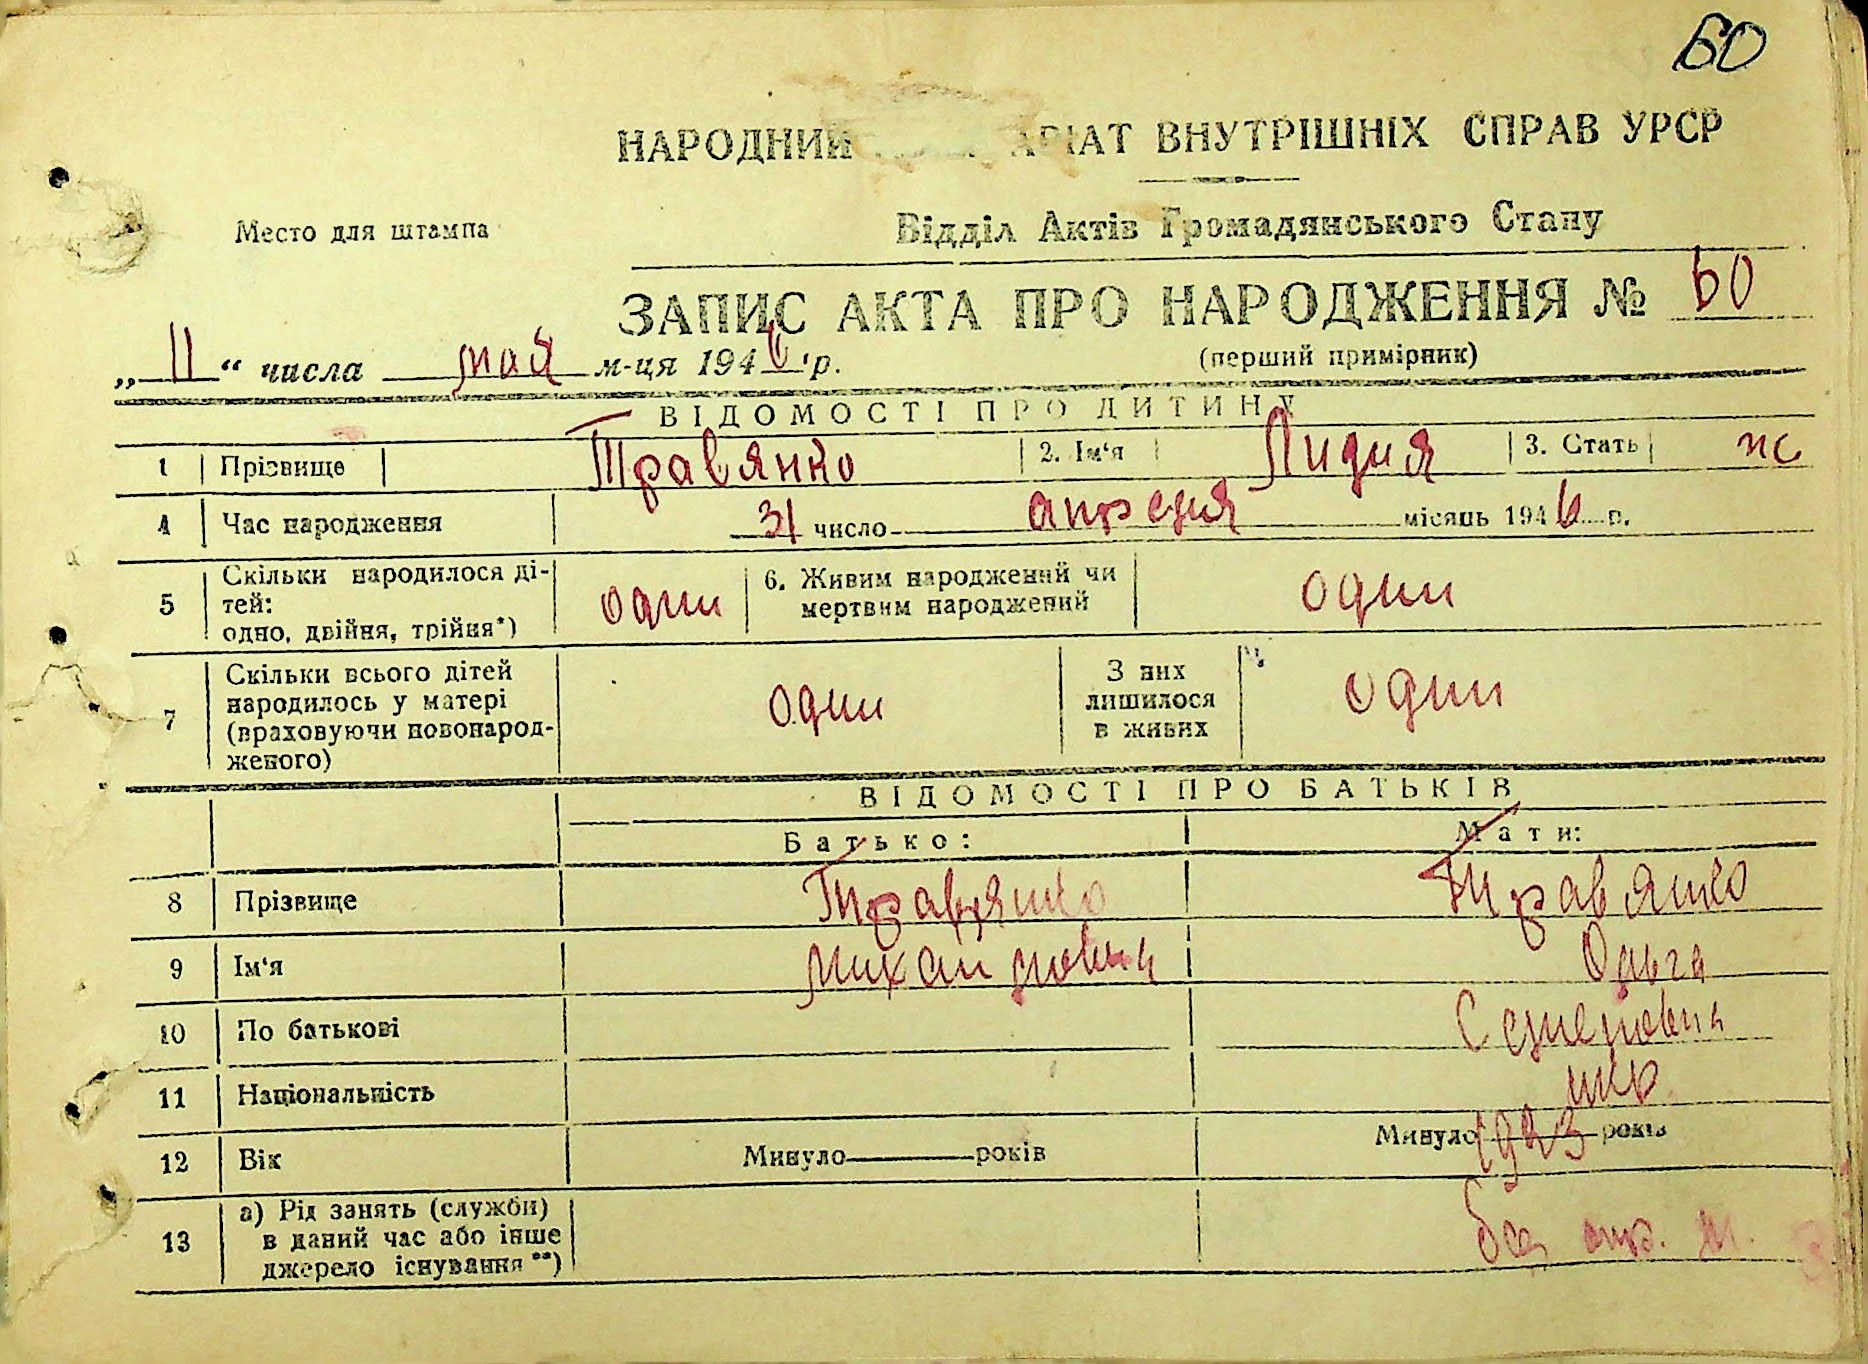 60
НАРОДНИЙ АРІАТ ВНУТРІШНІХ СПРАВ УРСР
Место для штампа
Відділ Актів Громадянського Стану
ЗАПИС АКТА ПРО НАРОДЖЕННЯ № 60
„ 11 “ числа мая м-ця 1946 р.
(перший примірник)
ВІДОМОСТІ ПРО ДИТИНУ
1 Прізвище Травянко 2. Ім'я Лидия 3. Стать ж
4 Час народження 31 число апреля місяць 1946 р.
5 Скільки народилося ді-
тей:
одно, двійня, трійня*) один 6. Живим народжений чи
мертвим народжений один
7 Скільки всього дітей
народилось у матері
(враховуючи новонарод-
женого) один З них
лишилося
в живих один
ВІДОМОСТІ ПРО БАТЬКІВ
Батько: Мати:
8 Прізвище Травянко Травянко
9 Ім'я Ольга
10 По батькові Семеновна
11 Національність укр.
12 Вік Минуло років Минуло 1923 років
13 а) Рід занять (служби)
в даний час або інше
джерело існування **)